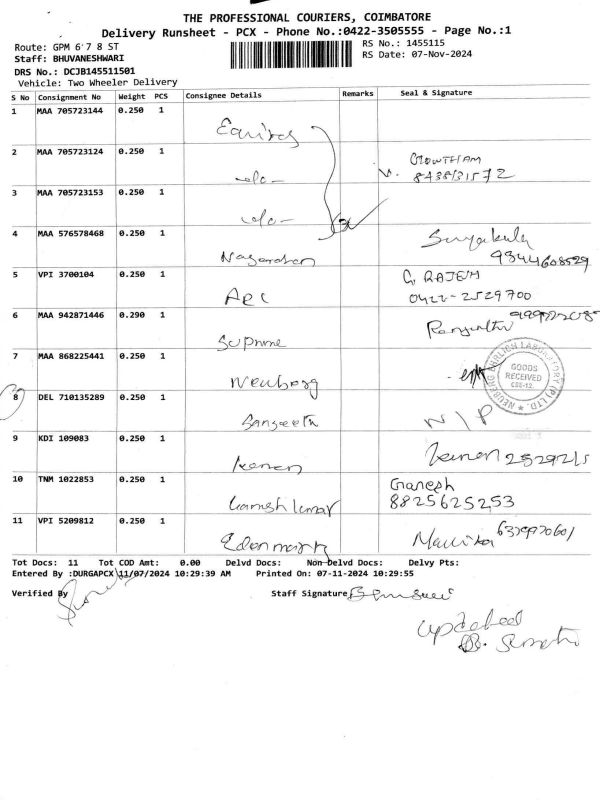 THE PROFESSIONAL COURIERS, COIMBATORE
Delivery Runsheet - PCX - Phone No.:0422-3505555 - Page No.:1
Route: GPM 6 7 8 ST
RS No.: 1455115
Staff: BHUVANESHWARI
RS Date: 07-Nov-2024
DRS No.: DCJB145511501
Vehicle: Two Wheeler Delivery
S No Consignment No Weight PCS Consignee Details Remarks Seal & Signature
1 MAA 705723144 0.250 1 Equitas
2 MAA 705723124 0.250 1 -do- GOWTHAM
3 MAA 705723153 0.250 1 -do-
4 MAA 576578468 0.250 1 9344608529
5 VPI 3700104 0.250 1 G. RAJESH
0422-2529700
6 MAA 942871446 0.290 1 Supreme
7 MAA 868225441 0.250 1 Neuberg
NEUBERG EHRLICH LABORATORY (P) LTD.
GOODS
RECEIVED
8 DEL 710135289 0.250 1 Sangeeth N/P
9 KDI 109083 0.250 1
10 TNM 1022853 0.250 1 Ganesh
8825625253
11 VPI 5209812 0.250 1
Tot Docs: 11 Tot COD Amt: 0.00 Delvd Docs: Non Delvd Docs: Delvy Pts:
Entered By :DURGAPCX 11/07/2024 10:29:39 AM Printed On: 07-11-2024 10:29:55
Verified By Staff Signature
updated